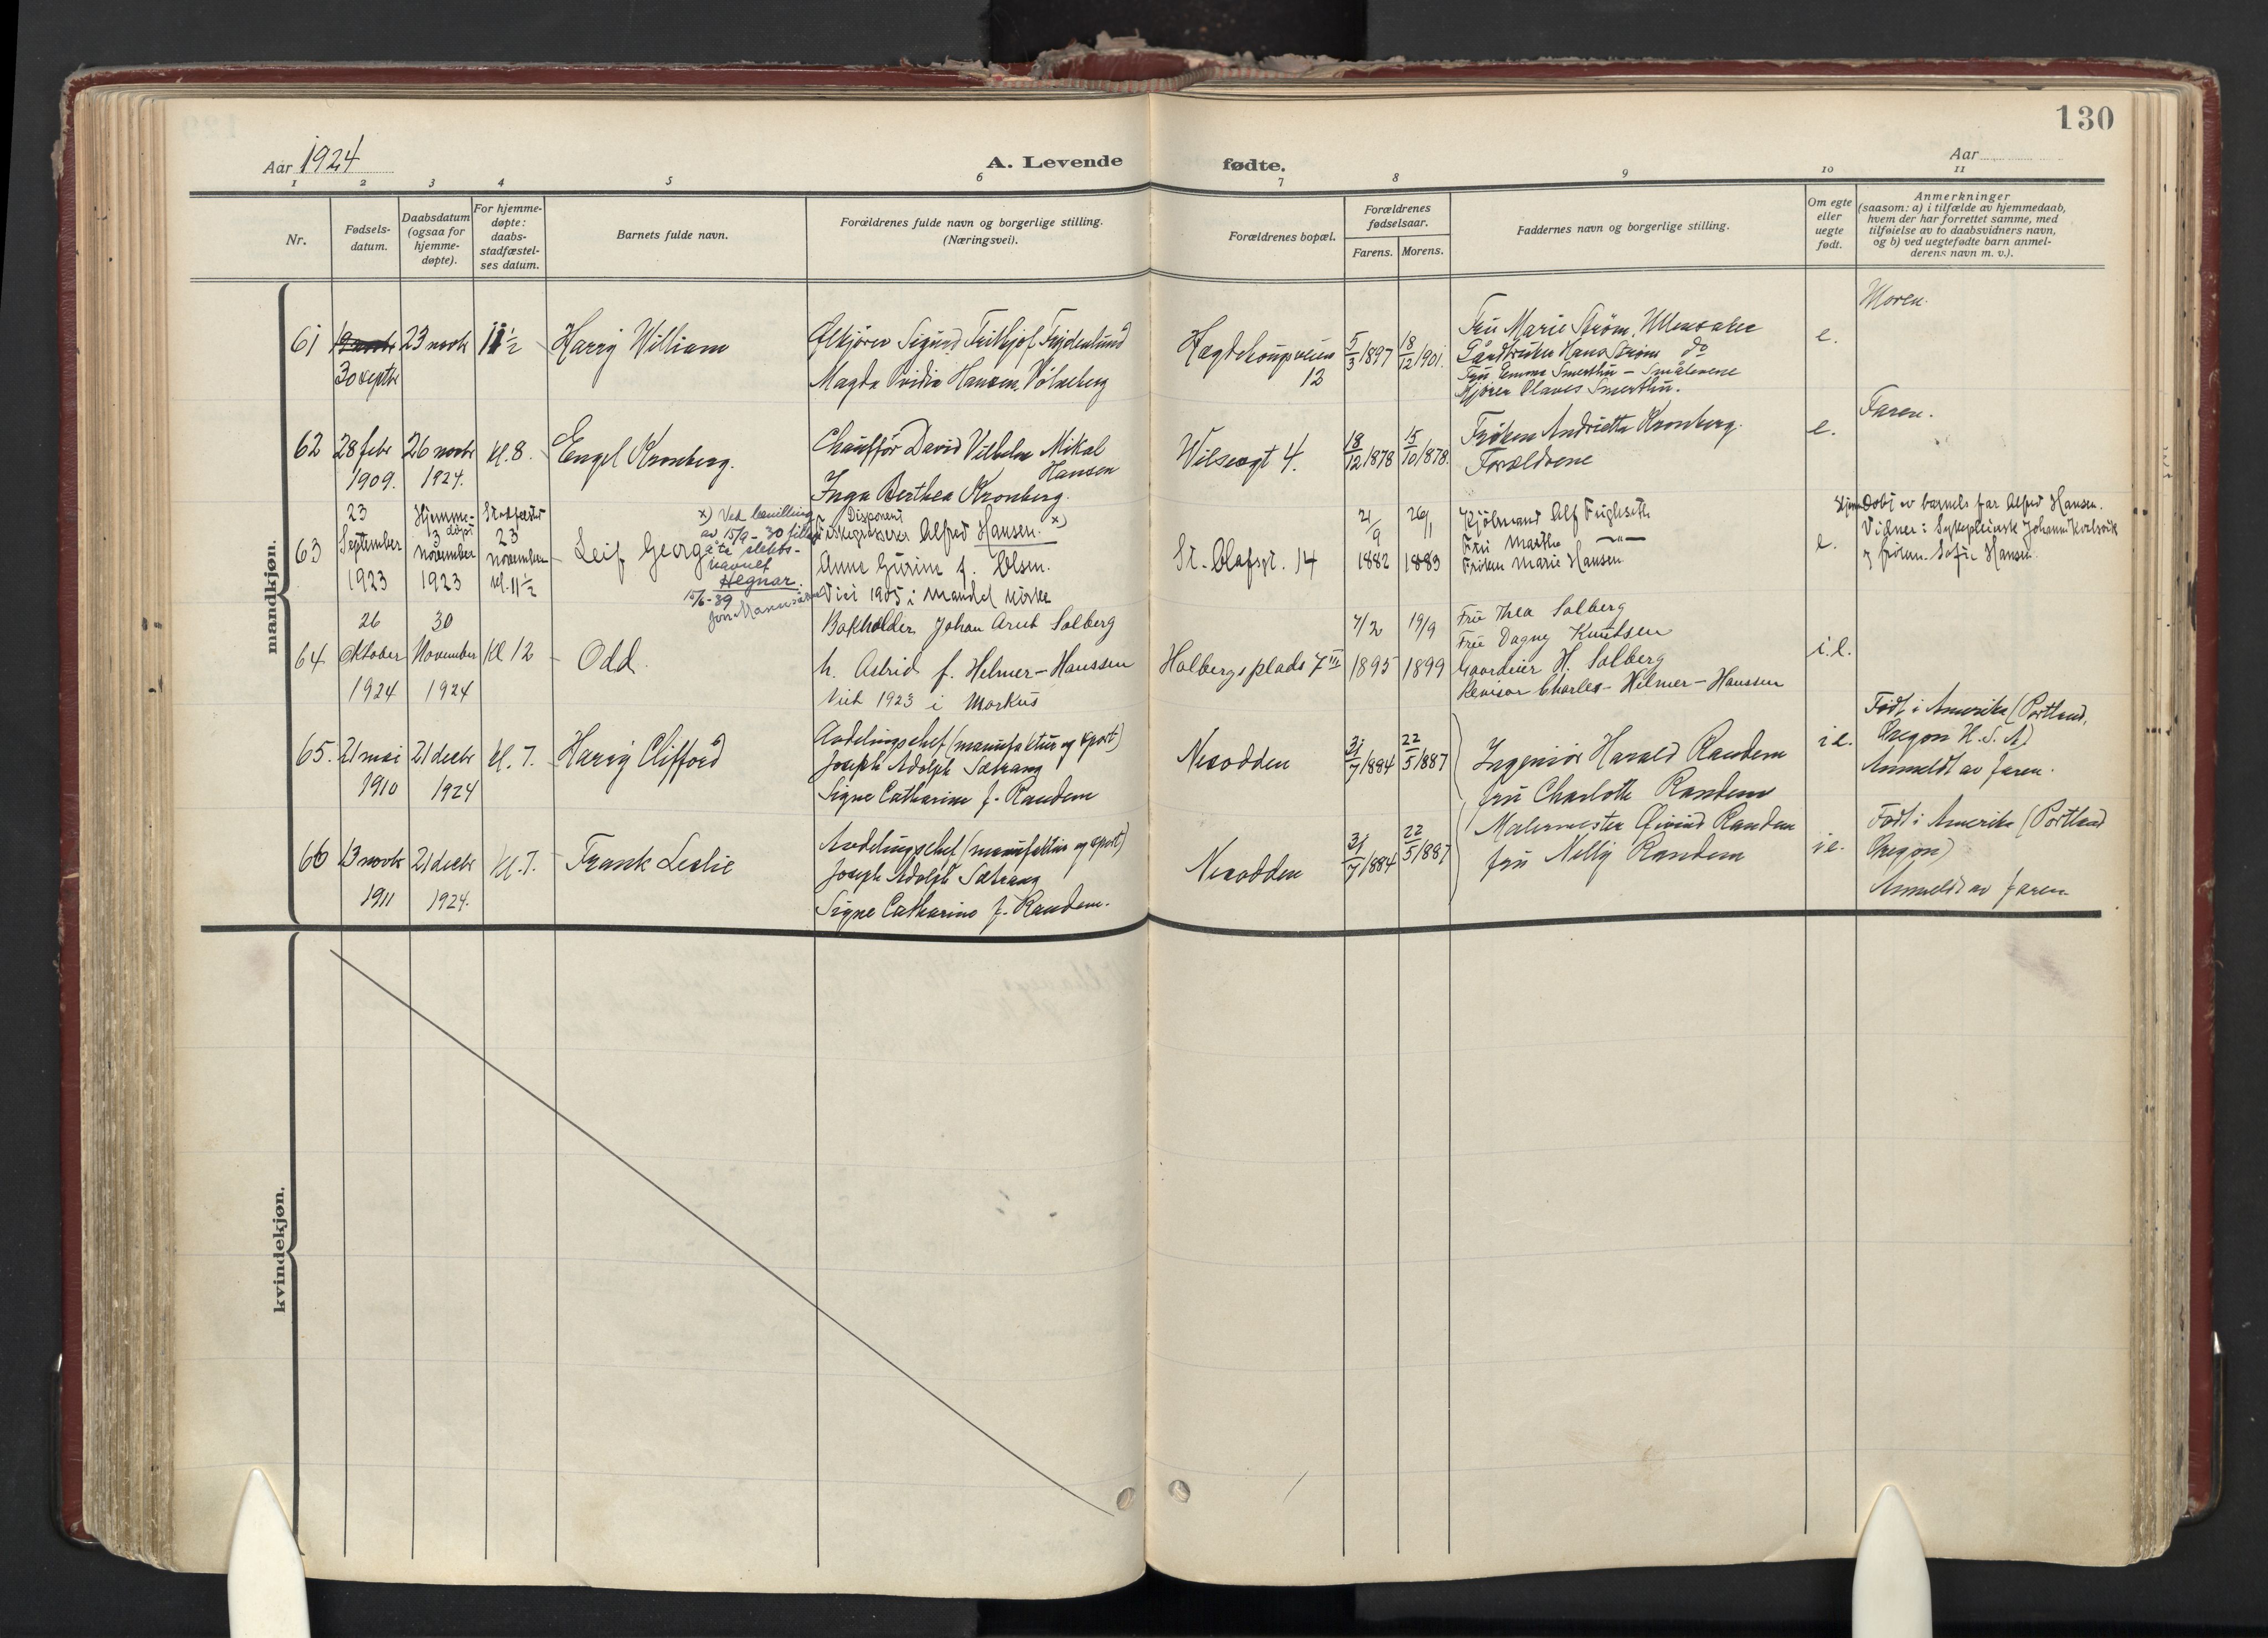 130
Aar 1924
A. Levende fødte.
Aar
1 2 3 4 5 6 7 8 9 10 11
Nr.
Fødsels-
datum.
Daabsdatum
(ogsaa for
hjemme-
døpte).
For hjemme-
døpte:
daabs-
stadfæstel-
ses datum.
Barnets fulde navn.
Forældrenes fulde navn og borgerlige stilling.
(Næringsvei).
Forældrenes bopæl.
Forældrenes
fødselsaar.
Farens. Morens.
Faddernes navn og borgerlige stilling.
Om egte
eller
uegte
født.
Anmerkninger
(saasom: a) i tilfælde av hjemmedaab,
hvem der har forrettet samme, med
tilføielse av to daabsvidners navn,
og b) ved uegtefødte barn anmel-
derens navn m. v.).
mandkjøn.
61
30 septbr
23 novbr
11 ½
Harry William
Ølkjører Sigurd Frithjof Frydenlund
Magda Hansen
12
5/3 1897
18/12 1901.
Fru Marie Strøm, Ullensaker
Gårdbruker Hans Strøm do
Fru Emma Smerthu - Smålenene
Kjører Olaves Smerthu.
e.
Moren.
62
28 febr
1909.
26 novbr
1924.
Kl. 8.
Engel Kronberg.
Chauffør David Vilhelm Mikal
Hansen
Inga Berthea Kronberg.
Wilsesgt 4.
18/12 1878
15/10 1878.
Frøken Andrietta Kronberg.
Forældrene
e.
Faren.
63
23
September
1923
Hjemme-
døpt
3
november
1923
Stadfæstet
23
november
kl. 11 ½
Leif Georg
x) Ved bevilling
av 15/9 - 30 tillatt
å ta slekts-
navnet
Hegnar.
15/6-39
Disponent
Alfred Hansen. x)
Anna Gurine f. Olsen.
Viet 1905 i Mandal kirke
St. Olafsgt. 14
21/9
1882
26/11
1883
Alf
Fru Martha —"—
Frøken Marie Hansen
e.
Hjemmedøbt av barnets far Alfred Hansen.
Vidner: Sykepleierske Johanne
og frøken Sofie Hansen.
64
26
Oktober
1924
30
November
1924
Kl 12
Odd.
Bokholder Johan Arnt Solberg
h. Astrid f. Helmer-Hanssen
Viet 1923 i Markus
Holbergs plads 7 III
7/2
1895
19/9
1899
Fru Thea Solberg
Fru Dagny Knutsen
Gaardeier H. Solberg
Revisor Charles Helmer-Hanssen
i.e.
65.
21 mai
1910
21 decbr
1924
Kl. 7.
Harry Clifford
Avdelingschef (manufaktur og sport)
Joseph Adolph Sætrang
Signe Catharina f. Randem
Nesodden
31/7 1884
22/5 1887
Ingeniør Harald Randem
fru Charlotte Randem
i e.
Født i Amerika (Portland,
Oregon U.S.A)
Anmeldt av faren.
66
13 novbr
1911
21 decbr
1924.
Kl. 7.
Frank Leslie
Avdelingschef (manufaktur og sport)
Joseph Adolph Sætrang
Signe Catharina f. Randem.
Nesodden
31/7 1884
22/5 1887
Malermester Øivind Randem
fru Nelly Randem
i e.
Født i Amerika (Portland
Oregon)
Anmeldt av faren
kvindekjøn.